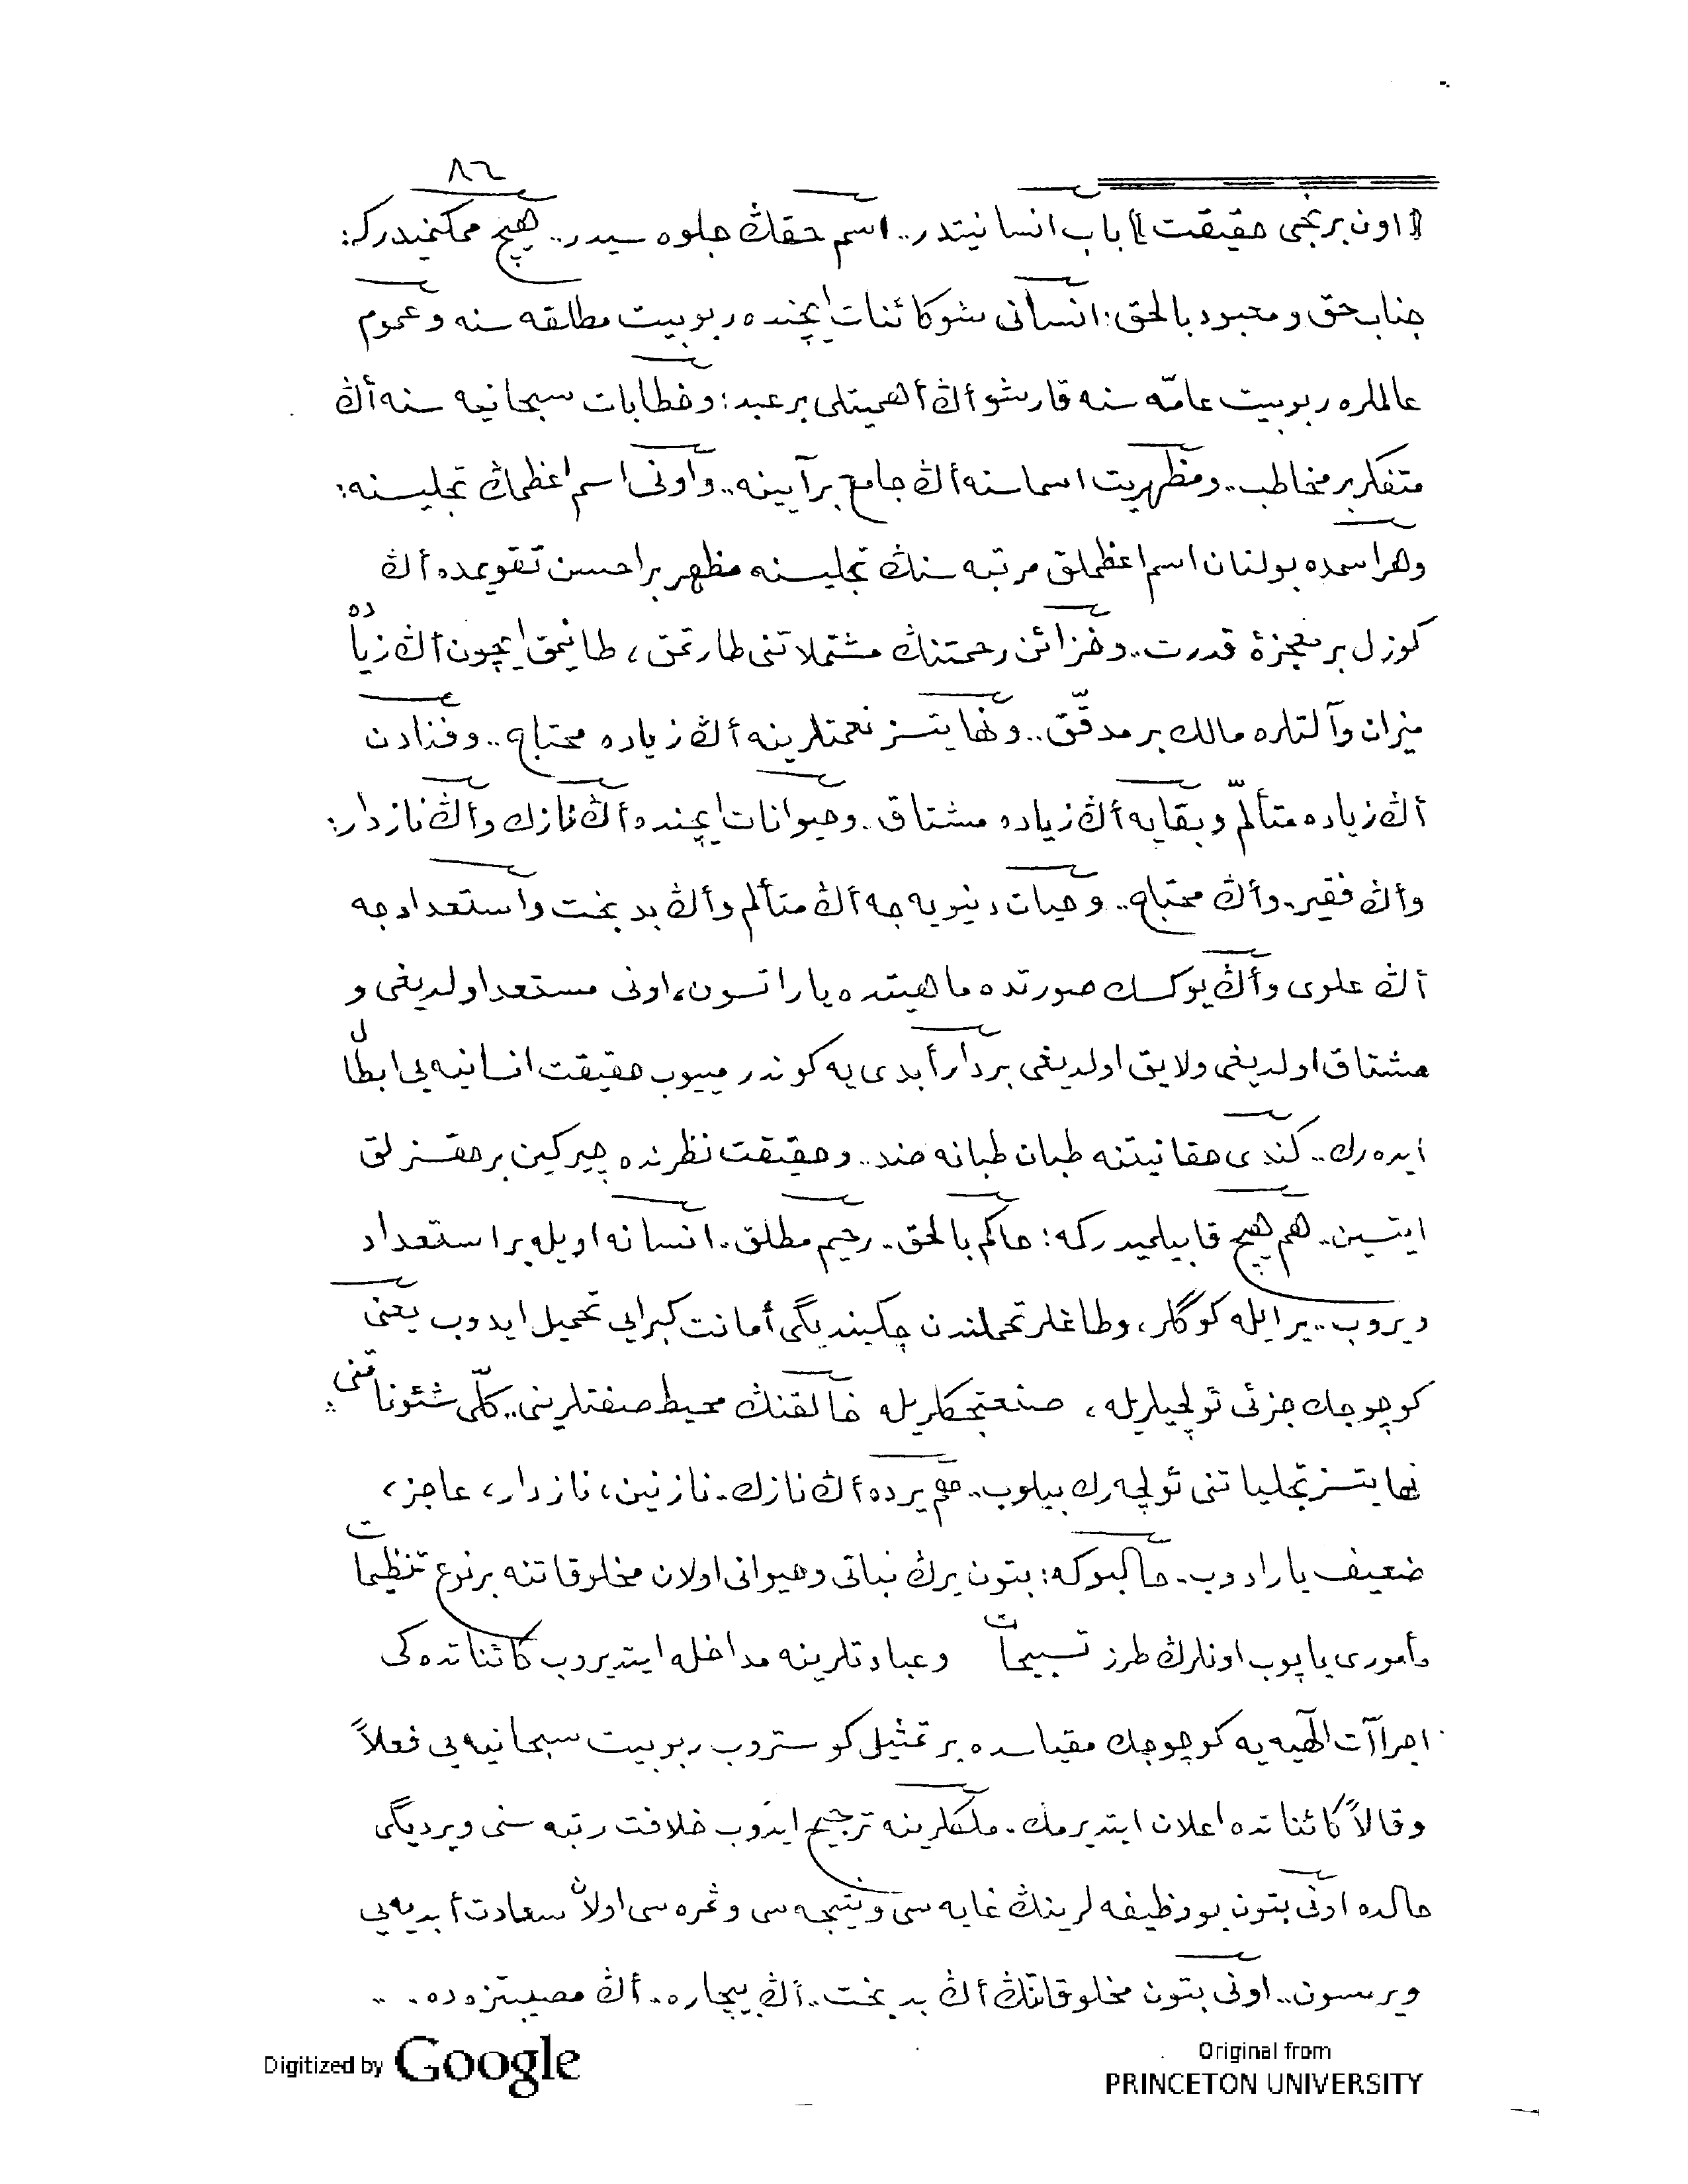 ٨٦
﴿اون برنجى حقيقت﴾ باب انسانيتدر.. اسم حقڭ جلوه سيدر.. هيچ ممكنميدركه:
جناب حق و معبود بالحق: انسانى شو كائنات ايچنده ربوبيت مطلقه سنه و عموم
عالملره ربوبيت عامّه سنه قارشو أڭ أهميتلى بر عبد: و خطابات سبحانيه سنه أڭ
متفكر بر مخاطب.. و مظهريت اسماسنه أڭ جامع بر آيينه.. و اونى اسم اعظمڭ تجليسنه:
و هر اسمده بولنان اسم اعظملق مرتبه سنڭ تجليسنه مظهر بر احسن تقويمده أڭ
كوزل بر معجزۀ قدرت.. و خزائن رحمتنڭ مشتملاتنى طارتمق، طانيمق ايچون أڭ زياده
ميزان و آلتلره مالك بر مدقّق.. و نهايتسز نعمتلرينه أڭ زياده محتاج.. و فنادن
أڭ زياده متألّم و بقايه أڭ زياده مشتاق. و حيوانات ايچنده أڭ نازك و أڭ نازدار:
و أڭ فقير. و أڭ محتاج.. و حيات دنيويه جه أڭ متألم و أڭ بدبخت و استعدادجه
أڭ علوى و أڭ يوكسك صورتده ماهيتده ياراتسون، اونى مستعد اولديغى و
مشتاق اولديغى و لايق اولديغى بر دار أبدى يه كوندرمييوب حقيقت انسانيه يى ابطال
ايده رك.. كندى حقانيتنه طبان طبانه ضد.. و حقيقت نظرنده چيركين بر حقسزلق
ايتسين.. هم هيچ قابيلميدركه: حاكم بالحق.. رحيم مطلق.. انسانه اويله بر استعداد
ويروب.. ير ايله كوكلر، و طاغلر تحملندن چكينديگى أمانت كبرايى تحميل ايدوب يعنى
كوچوجك جزئى ئولچيلريله، صنعتجكلريله خالقنڭ محيط صفتلرينى.. كلّى شئوناتنى:
نهايتسز تجلياتنى ئولچه رك بيلوب.. هم يرده أڭ نازك. نازنين، نازدار، عاجز،
ضعيف يارادوب. حالبوكه: بتون يرڭ نباتى و حيوانى اولان مخلوقاتنه بر نوع تنظيمات
مأمورى ياپوب اونلرڭ طرز تسبيحات و عبادتلرينه مداخله ايتديروب كائناتده كى
اجراآت الٓهيه يه كوچوجك مقياسده بر تمثيل كوستروب ربوبيت سبحانيه يى فعلاً
و قالاً كائناتده اعلان ايتديرمك. ملكلرينه ترجيح ايدوب خلافت رتبه سنى ويرديگى
حالده اونى بتون بو وظيفه لرينڭ غايه سى و نتيجه سى و ثمره سى اولان سعادت أبديه يى
ويرمسون.. اونى بتون مخلوقاتنڭ أڭ بدبخت.. أڭ بيچاره.. أڭ مصيبتزوده..
Digitized by Google
Original from
PRINCETON UNIVERSITY